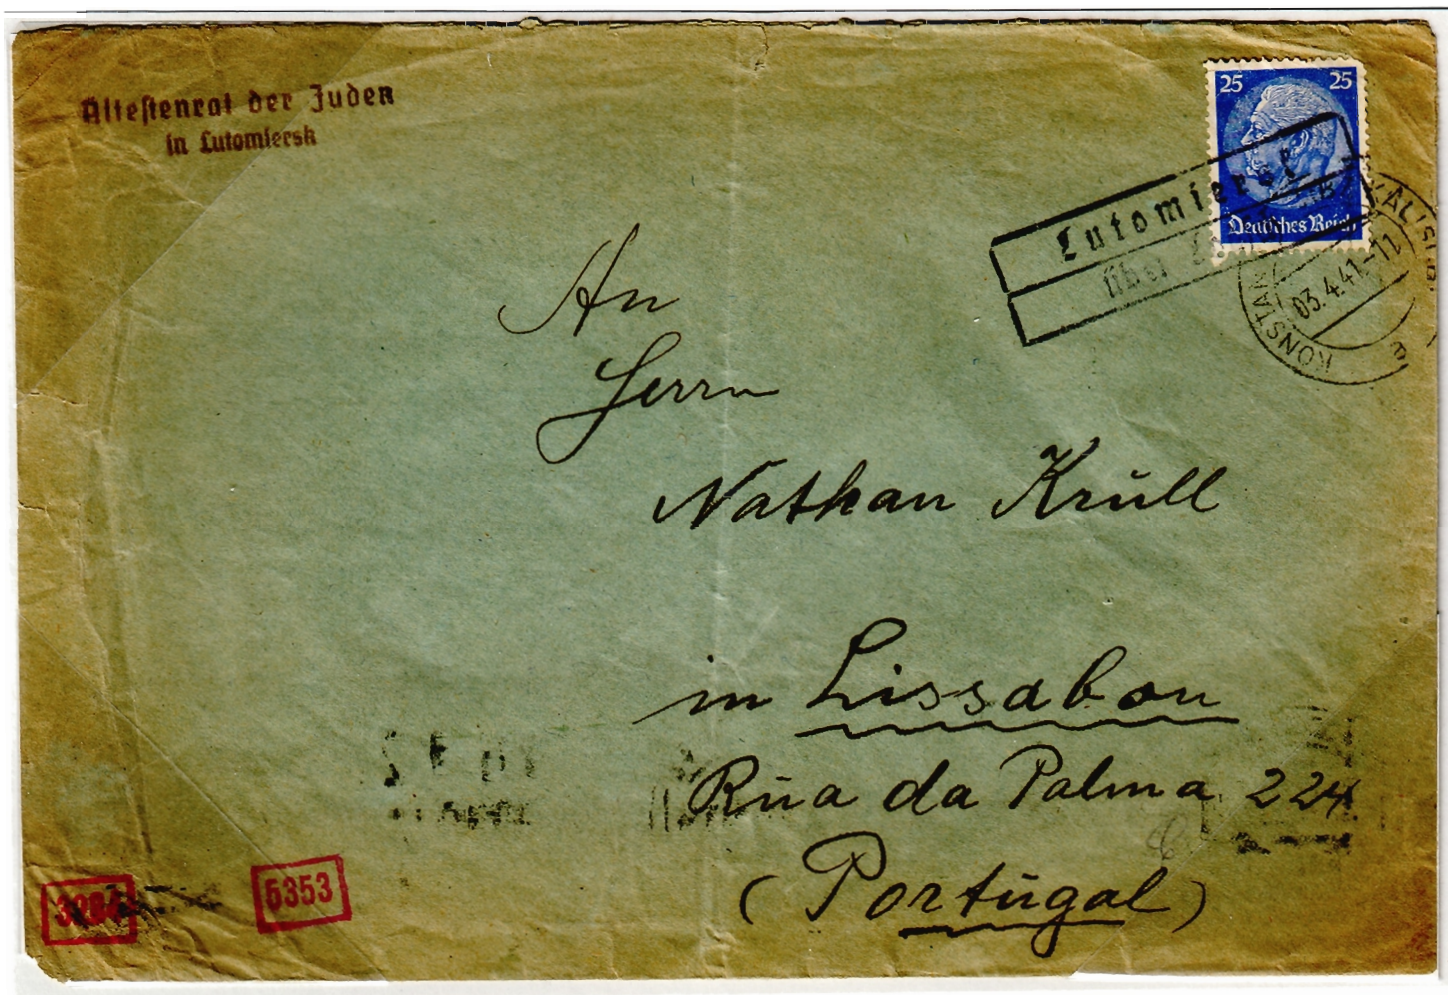 Ältestenrat der Juden
in Lutomiersk
25 25
Deutsches Reich
Lutomiersk
über
03.4.41.-11
e
An
Herrn
Nathan Krŭll
in Lissabon
Rŭa da Palma 224
(Portŭgal)
5353